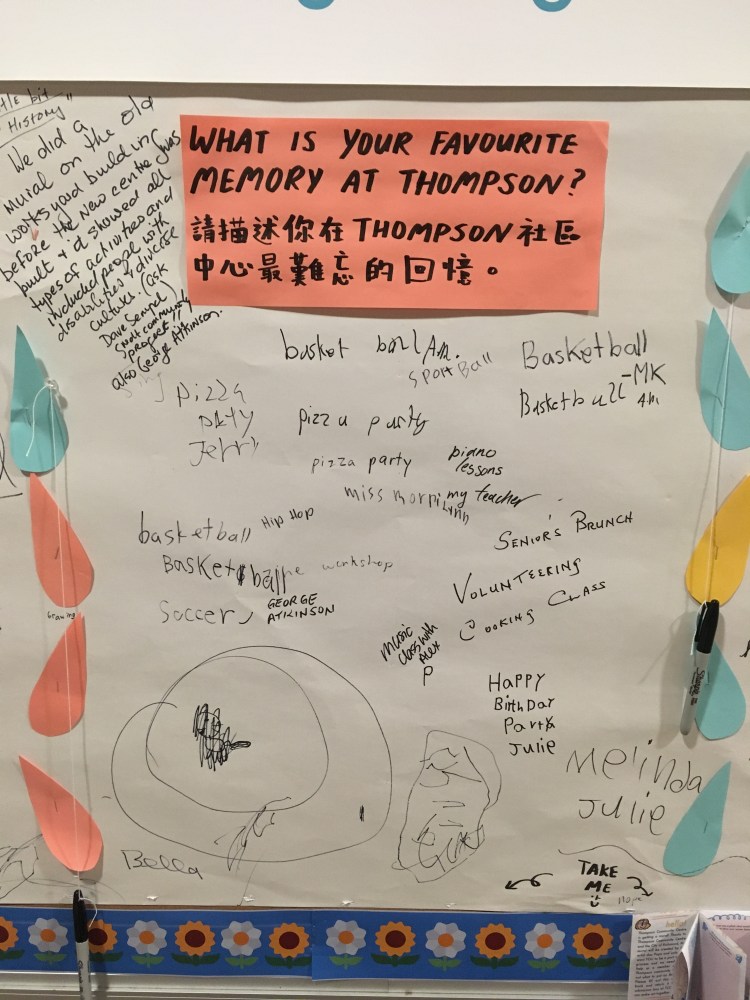 History"
We did a
Mural on the old
works yard building
before the new centre was
built + it showed all
types of activities and
included people with
disabilities + diverse
cultures. (ask
Dave Semple
community
project!!
also George Atkinson.
WHAT IS YOUR FAVOURITE
MEMORY AT THOMPSON?
請描述你在THOMPSON社區
中心最難忘的回憶。
basket ball Am.
Sport Ball
Basketball
-MK
Basketball
A.M.
pizza
Jerry
pizza party
pizza party
piano
lessons
miss
my teacher
basketball
Hip Hop
Basketball
workshop
Soccer
GEORGE
ATKINSON
SENIOR'S BRUNCH
VOLUNTEERING
COOKING CLASS
music
class with
Alex
P
HAPPY
BirthDay
Party
Julie
Melinda
Julie
Bella
TAKE
ME